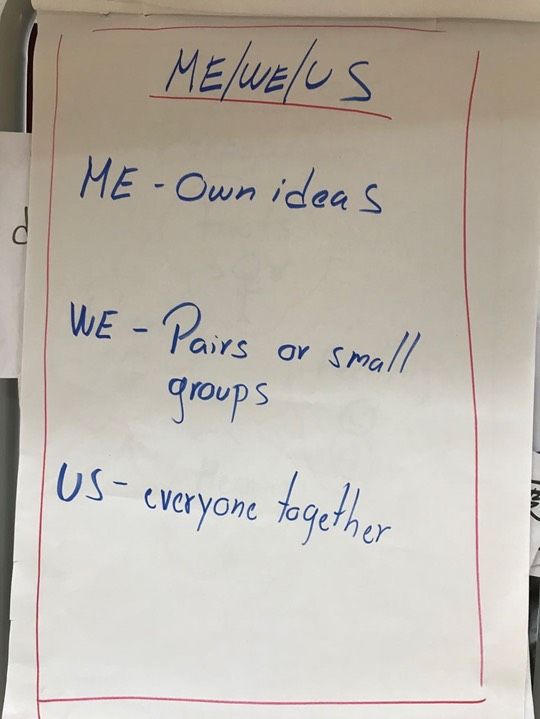 ME/WE/US
ME - Own ideas
WE - Pairs or small
groups
US - everyone together
d